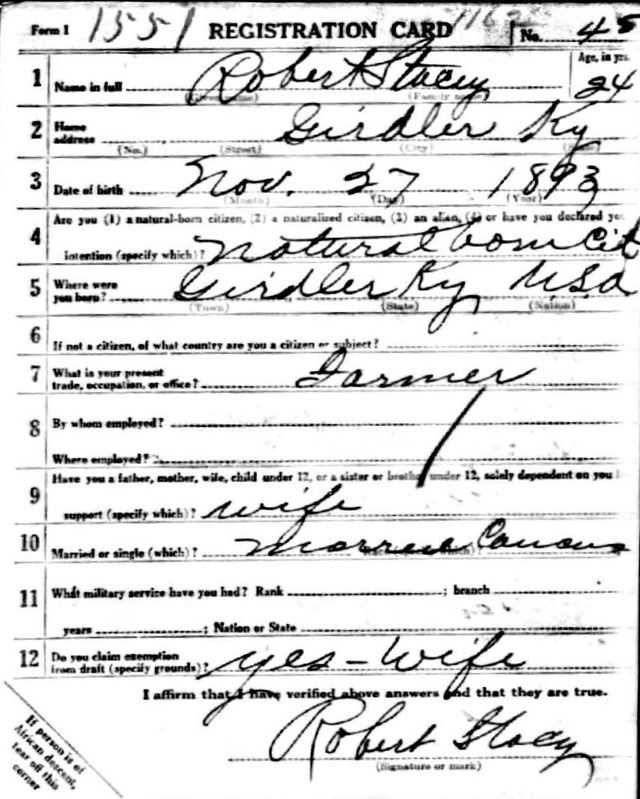 Form 1 1551 REGISTRATION CARD 1162 No. 45
Age, in yrs.
1 Name in full Robert Stacey 24
(Given name) (Family name)
2 Home address Girdler Ky
(No.) (Street) (City) (State)
3 Date of birth Nov. 27 1893
(Month) (Day) (Year)
Are you (1) a natural-born citizen, (2) a naturalized citizen, (3) an alien, (4) or have you declared your
4 intention (specify which)? Natural born Cit
5 Where were you born? Girdler Ky USA
(Town) (State) (Nation)
6 If not a citizen, of what country are you a citizen or subject?
7 What is your present trade, occupation, or office? Farmer
8 By whom employed?
Where employed?
Have you a father, mother, wife, child under 12, or a sister or brother under 12, solely dependent on you
9 support (specify which)? wife
10 Married or single (which)? Married
11 What military service have you had? Rank ; branch
years ; Nation or State
12 Do you claim exemption from draft (specify grounds)? yes - Wife
I affirm that I have verified above answers and that they are true.
Robert Stacy
(Signature or mark)
If person is of
African descent,
tear off this
corner